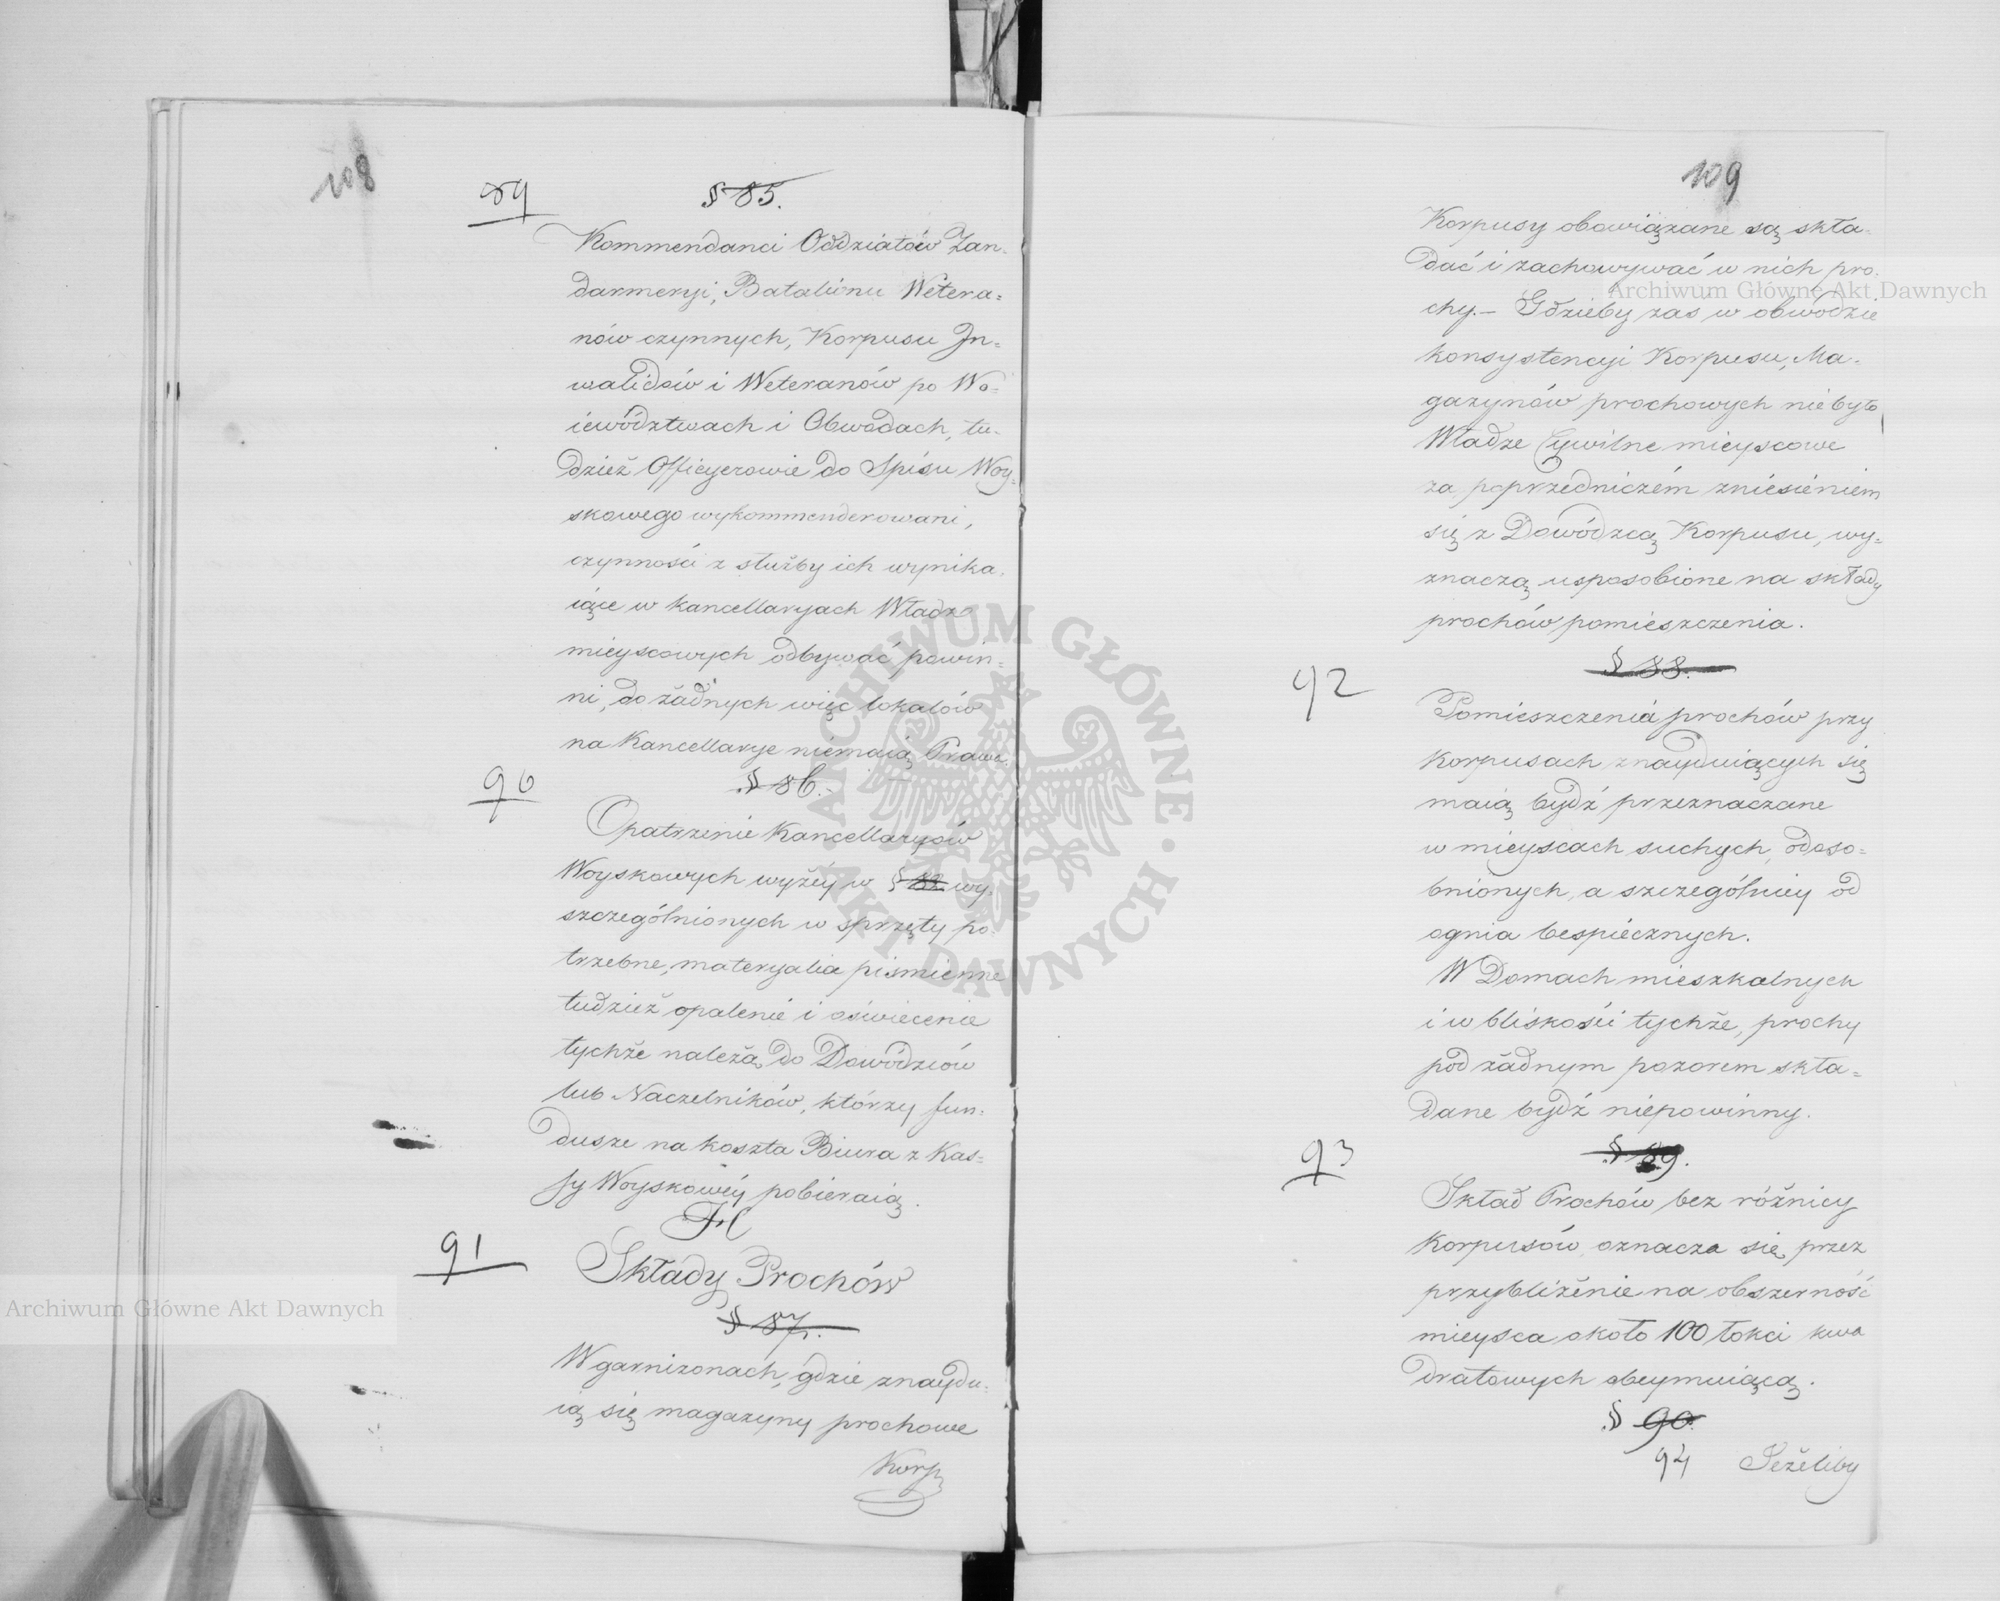 108
89 § 85.
Kommendanci Oddziałów Żan-
darmeryi, Batalionu Wetera=
nów czynnych, Korpusu In=
walidów i Weteranów po Wo=
iewództwach i Obwodach, tu-
dzież Officyerowie do Spisu Woy=
skowego wykommenderowani,
czynności z służby ich wynika-
iące w kancellaryach Władz
mieyscowych odbywać powin=
ni, do żadnych więc lokalów
na Kancellarye niemaią Prawa.
90 § 86.
Opatrzenie Kancellaryów
Woyskowych wyżéy w § 82 wy-
szczególnionych w sprzęty po-
trzebne, materyalia piśmienne
tudzież opalenie i oświecenie
tychże należą do Dowódzców
lub Naczelników, którzy fun-
dusze na koszta Biura z Kas=
sy Woyskowéy pobieraią.
H
91 Składy Prochów
§ 87.
W garnizonach, gdzie znaydu-
ią się magazyny prochowe
Korp
109
Korpusy obowiązane są skła-
dać i zachowywać w nich pro-
chy.- Gdzieby zaś w obwodzie
konsystencyi Korpusu, Ma-
gazynów prochowych nie było
Władze Cywilne mieyscowe
za poprzedniczém zniesieniem
się z Dowódzcą Korpusu, wy=
znaczą usposobione na składy
prochów pomieszczenia.
92 § 88.
Pomieszczenia prochów przy
Korpusach znayduiących się
maią bydź przeznaczane
w mieyscach suchych, odoso=
bnionych, a szczególniey od
ognia bespiecznych.
W Domach mieszkalnych
i w bliskości tychże, prochy
pod żadnym pozorem skła=
dane bydź niepowinny.
93 § 89.
Skład Prochów bez różnicy
Korpusów oznacza się przez
przybliżenie na obszerność
mieysca około 100 łokci kwa
dratowych obeymuiącą.
§ 90.
94 Jeżeliby
Archiwum Główne Akt Dawnych
Archiwum Główne Akt Dawnych
ARCHIWUM GŁÓWNE · AKT DAWNYCH ·